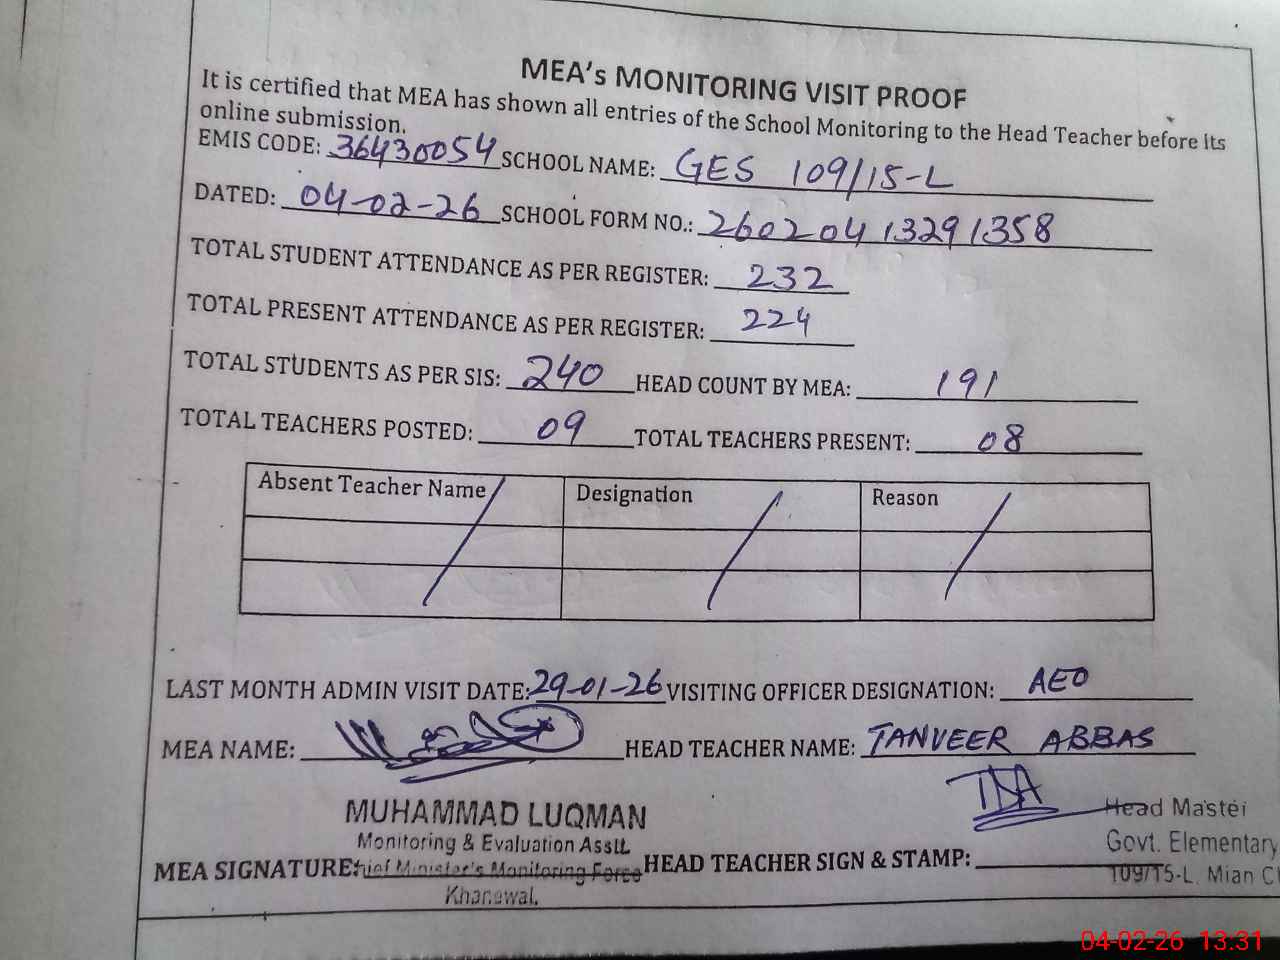 MEA's MONITORING VISIT PROOF
It is certified that MEA has shown all entries of the School Monitoring to the Head Teacher before its
online submission.
EMIS CODE: 36430054 SCHOOL NAME: GES 109/15-L
DATED: 04-02-26 SCHOOL FORM NO.: 26020413291358
TOTAL STUDENT ATTENDANCE AS PER REGISTER: 232
TOTAL PRESENT ATTENDANCE AS PER REGISTER: 224
TOTAL STUDENTS AS PER SIS: 240 HEAD COUNT BY MEA: 191
TOTAL TEACHERS POSTED: 09 TOTAL TEACHERS PRESENT: 08
Absent Teacher Name Designation Reason
LAST MONTH ADMIN VISIT DATE: 29-01-26 VISITING OFFICER DESIGNATION: AEO
MEA NAME: HEAD TEACHER NAME: TANVEER ABBAS
MUHAMMAD LUQMAN
Monitoring & Evaluation Asstt.
Chief Minister's Monitoring Force
Khanewal.
MEA SIGNATURE: HEAD TEACHER SIGN & STAMP:
Head Master
Govt. Elementary
109/15-L, Mian
04-02-26 13:31